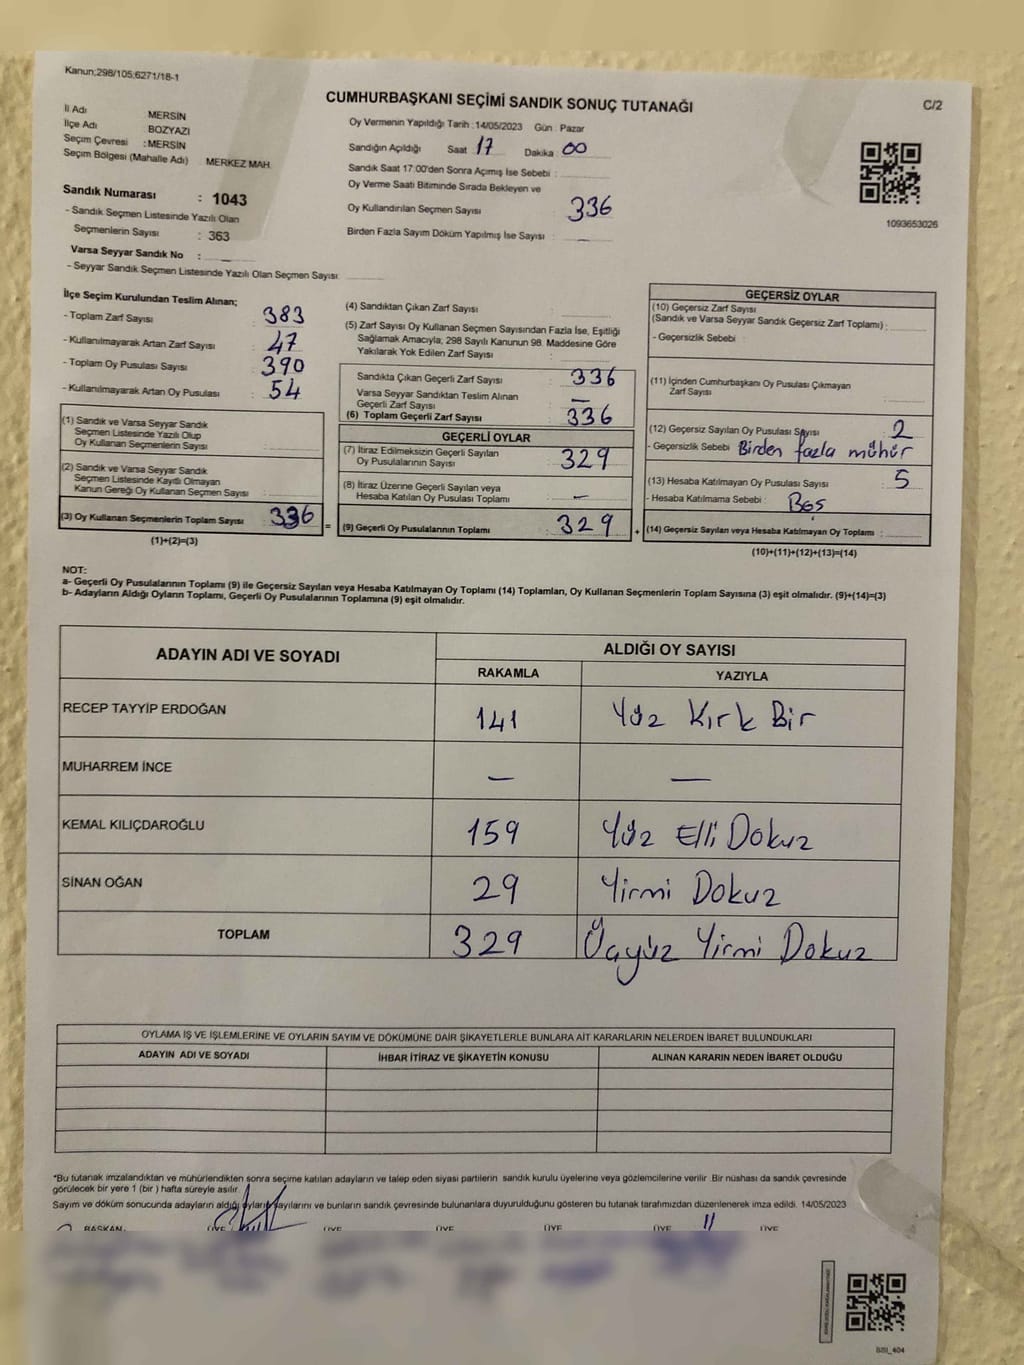 Kanun;298/105;6271/18-1
CUMHURBAŞKANI SEÇİMİ SANDIK SONUÇ TUTANAĞI
C/2
İl Adı MERSİN
İlçe Adı BOZYAZI
Seçim Çevresi : MERSİN
Seçim Bölgesi (Mahalle Adı) MERKEZ MAH.
Sandık Numarası : 1043
- Sandık Seçmen Listesinde Yazılı Olan
Seçmenlerin Sayısı : 363
Varsa Seyyar Sandık No : –
- Seyyar Sandık Seçmen Listesinde Yazılı Olan Seçmen Sayısı:
Oy Vermenin Yapıldığı Tarih : 14/05/2023 Gün : Pazar
Sandığın Açıldığı Saat 17 Dakika : 00
Sandık Saat 17:00'den Sonra Açımış İse Sebebi :
Oy Verme Saati Bitiminde Sırada Bekleyen ve
Oy Kullandırılan Seçmen Sayısı 336
Birden Fazla Sayım Döküm Yapılmış İse Sayısı : –
1093653026
İlçe Seçim Kurulundan Teslim Alınan;
- Toplam Zarf Sayısı : 383
- Kullanılmayarak Artan Zarf Sayısı : 47
- Toplam Oy Pusulası Sayısı : 390
- Kullanılmayarak Artan Oy Pusulası : 54
(1) Sandık ve Varsa Seyyar Sandık
Seçmen Listesinde Yazılı Olup
Oy Kullanan Seçmenlerin Sayısı :
(2) Sandık ve Varsa Seyyar Sandık
Seçmen Listesinde Kayıtlı Olmayan
Kanun Gereği Oy Kullanan Seçmen Sayısı :
(3) Oy Kullanan Seçmenlerin Toplam Sayısı : 336
(1)+(2)=(3)
=
(4) Sandıktan Çıkan Zarf Sayısı :
(5) Zarf Sayısı Oy Kullanan Seçmen Sayısından Fazla İse, Eşitliği
Sağlamak Amacıyla; 298 Sayılı Kanunun 98. Maddesine Göre
Yakılarak Yok Edilen Zarf Sayısı :
Sandıkta Çıkan Geçerli Zarf Sayısı : 336
Varsa Seyyar Sandıktan Teslim Alınan
Geçerli Zarf Sayısı : –
(6) Toplam Geçerli Zarf Sayısı : 336
GEÇERLİ OYLAR
(7) İtiraz Edilmeksizin Geçerli Sayılan
Oy Pusulalarının Sayısı : 329
(8) İtiraz Üzerine Geçerli Sayılan veya
Hesaba Katılan Oy Pusulası Toplamı : –
(9) Geçerli Oy Pusulalarının Toplamı : 329
+
GEÇERSİZ OYLAR
(10) Geçersiz Zarf Sayısı
(Sandık ve Varsa Seyyar Sandık Geçersiz Zarf Toplamı) :
- Geçersizlik Sebebi :
(11) İçinden Cumhurbaşkanı Oy Pusulası Çıkmayan
Zarf Sayısı :
(12) Geçersiz Sayılan Oy Pusulası Sayısı : 2
- Geçersizlik Sebebi Birden fazla mühür
(13) Hesaba Katılmayan Oy Pusulası Sayısı : 5
- Hesaba Katılmama Sebebi :
(14) Geçersiz Sayılan veya Hesaba Katılmayan Oy Toplamı :
(10)+(11)+(12)+(13)=(14)
NOT:
a- Geçerli Oy Pusulalarının Toplamı (9) ile Geçersiz Sayılan veya Hesaba Katılmayan Oy Toplamı (14) Toplamları, Oy Kullanan Seçmenlerin Toplam Sayısına (3) eşit olmalıdır. (9)+(14)=(3)
b- Adayların Aldığı Oyların Toplamı, Geçerli Oy Pusulalarının Toplamına (9) eşit olmalıdır.
ADAYIN ADI VE SOYADI
ALDIĞI OY SAYISI
RAKAMLA YAZIYLA
RECEP TAYYİP ERDOĞAN 141 Yüz Kırk Bir
MUHARREM İNCE – –
KEMAL KILIÇDAROĞLU 159 Yüz Elli Dokuz
SİNAN OĞAN 29 Yirmi Dokuz
TOPLAM 329 Üçyüz Yirmi Dokuz
OYLAMA İŞ VE İŞLEMLERİNE VE OYLARIN SAYIM VE DÖKÜMÜNE DAİR ŞİKAYETLERLE BUNLARA AİT KARARLARIN NELERDEN İBARET BULUNDUKLARI
ADAYIN ADI VE SOYADI İHBAR İTİRAZ VE ŞİKAYETİN KONUSU ALINAN KARARIN NEDEN İBARET OLDUĞU
*Bu tutanak imzalandıktan ve mühürlendikten sonra seçime katılan adayların ve talep eden siyasi partilerin sandık kurulu üyelerine veya gözlemcilerine verilir. Bir nüshası da sandık çevresinde
görülecek bir yere 1 (bir ) hafta süreyle asılır.
Sayım ve döküm sonucunda adayların aldığı oyların sayılarını ve bunların sandık çevresinde bulunanlara duyurulduğunu gösteren bu tutanak tarafımızdan düzenlenerek imza edildi. 14/05/2023
BAŞKAN ÜYE ÜYE ÜYE ÜYE ÜYE ÜYE